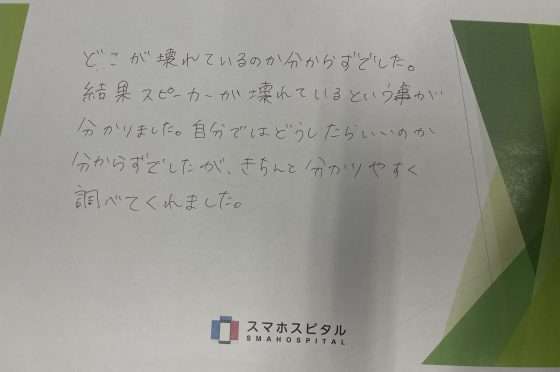 どこが壊れているのか分からずでした。
結果スピーカーが壊れているという事が
分かりました。自分ではどうしたらいいのか
分からずでしたが、きちんと分かりやすく
調べてくれました。
スマホスピタル
SMAHOSPITAL